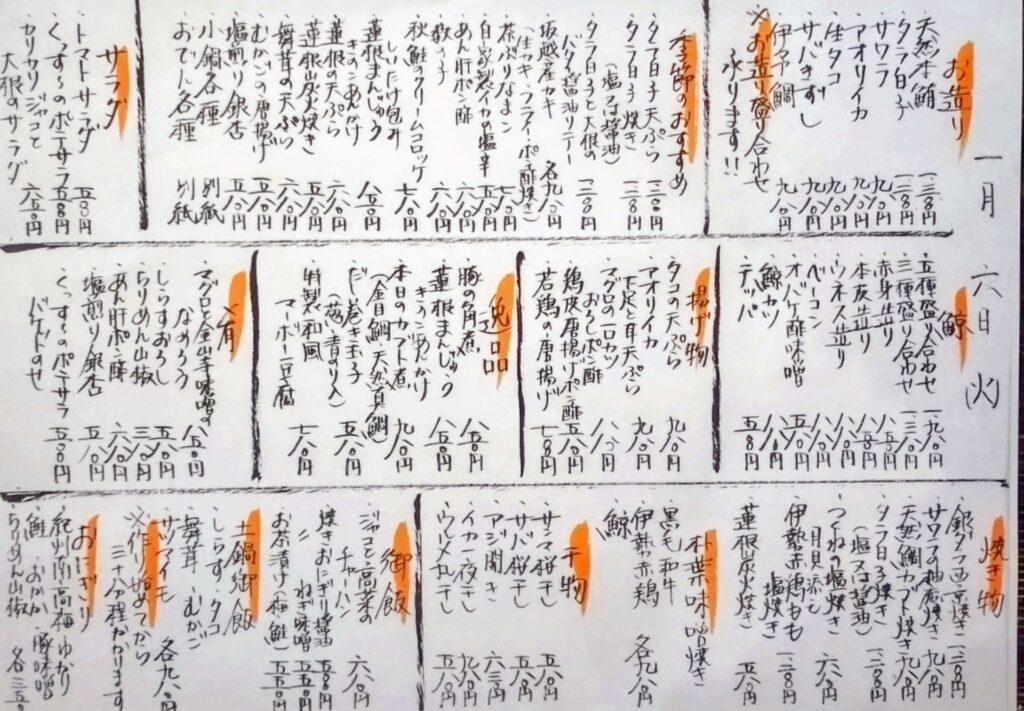 一月 六日 (火)
お造り
・天然本鮪 一三八〇円
・タラ白子 一二八〇円
・サワラ 九八〇円
・アオリイカ 九八〇円
・生タコ 九八〇円
・サバきずし 九八〇円
・伊予鯛 九八〇円
※お造り盛り合わせ
承ります!!
季節のおすすめ
・タラ白子天ぷら 一三八〇円
(塩又は醤油)
・タラ白子焼き 一三八〇円
・タラ白子と大根の
バタ醤油ソテー 一二八〇円
・坂越産カキ 各九八〇円
(生カキ・フライ・ポン酢・焼き)
・茶ぶりなまこ 七八〇円
・自家製イカの塩辛 五八〇円
・あん肝ポン酢 六八〇円
・数の子 六八〇円
・秋鮭のクリームコロッケ 七八〇円
しいたけ包み
・蓮根まんじゅう
きのこあんかけ 八五〇円
・蓮根の天ぷら 六八〇円
・蓮根炭火焼き 五八〇円
・舞茸の天ぷら 六八〇円
・むかごの唐揚げ 五八〇円
・塩煎り銀杏 五八〇円
・小鍋各種 別紙
・おでん各種 別紙
サラダ
・トマトサラダ 五八〇円
・くっす〜のポテサラ 五五〇円
・カリカリジャコと
大根のサラダ 六五〇円
鯨
・五種盛り合わせ 一九八〇円
・三種盛り合わせ 一三八〇円
・赤身造り
・本皮造り
・ウネス造り
・ベーコン
・オバケ酢味噌
・鯨カツ
・テッパ
揚げ物
・タコの天ぷら 九八〇円
・アオリイカ
下足と耳天ぷら 九八〇円
・マグロの一口カツ
おろしポン酢 八八〇円
・鶏皮唐揚げポン酢 五八〇円
・若鶏の唐揚げ 七八〇円
逸品
・豚の角煮 八五〇円
・蓮根まんじゅう
きのこあんかけ 八五〇円
・本日のカブト煮 九八〇円
(金目鯛、天然真鯛)
・だし巻き玉子 五八〇円
(葱、青のり入)
・特製和風
マーボー豆腐 七八〇円
肴
・マグロと金山寺味噌の
なめろう 八五〇円
・しらすおろし 五八〇円
・ちりめん山椒 三五〇円
・あん肝ポン酢 六八〇円
・塩煎り銀杏 五八〇円
・くっす〜のポテサラ
バケットのせ 五五〇円
焼き物
・銀ダラ西京焼き 一三八〇円
・サワラの柚庵焼き 九八〇円
・天然鯛カブト焼き 九八〇円
・タラ白子焼き 一三八〇円
(塩又は醤油)
・つくねの塩焼き
月見添え 六八〇円
・伊勢赤鶏もも
塩焼き 一二八〇円
・蓮根炭火焼き 五八〇円
朴葉味噌焼き
・黒毛和牛
・伊勢赤鶏 各九八〇円
・鯨
干物
・サンマ桜干し 五八〇円
・サバ桜干し 五八〇円
・アジ開き 六三〇円
・イカ一夜干し 九八〇円
・ウルメ丸干し 五八〇円
御飯
・ジャコと高菜の
チャーハン 六八〇円
・焼きおにぎり醤油 五五〇円
・〃 ねぎ味噌 五八〇円
・お茶漬け(梅、鮭) 各五五〇円
土鍋御飯
・しらす・タコ
・舞茸・むかご
・サツマイモ 各九八〇円
※作り始めてから
三十分程かかります
おにぎり
・紀州南高梅・ゆかり
・鮭・おかか・豚味噌
・ちりめん山椒 各三五〇円